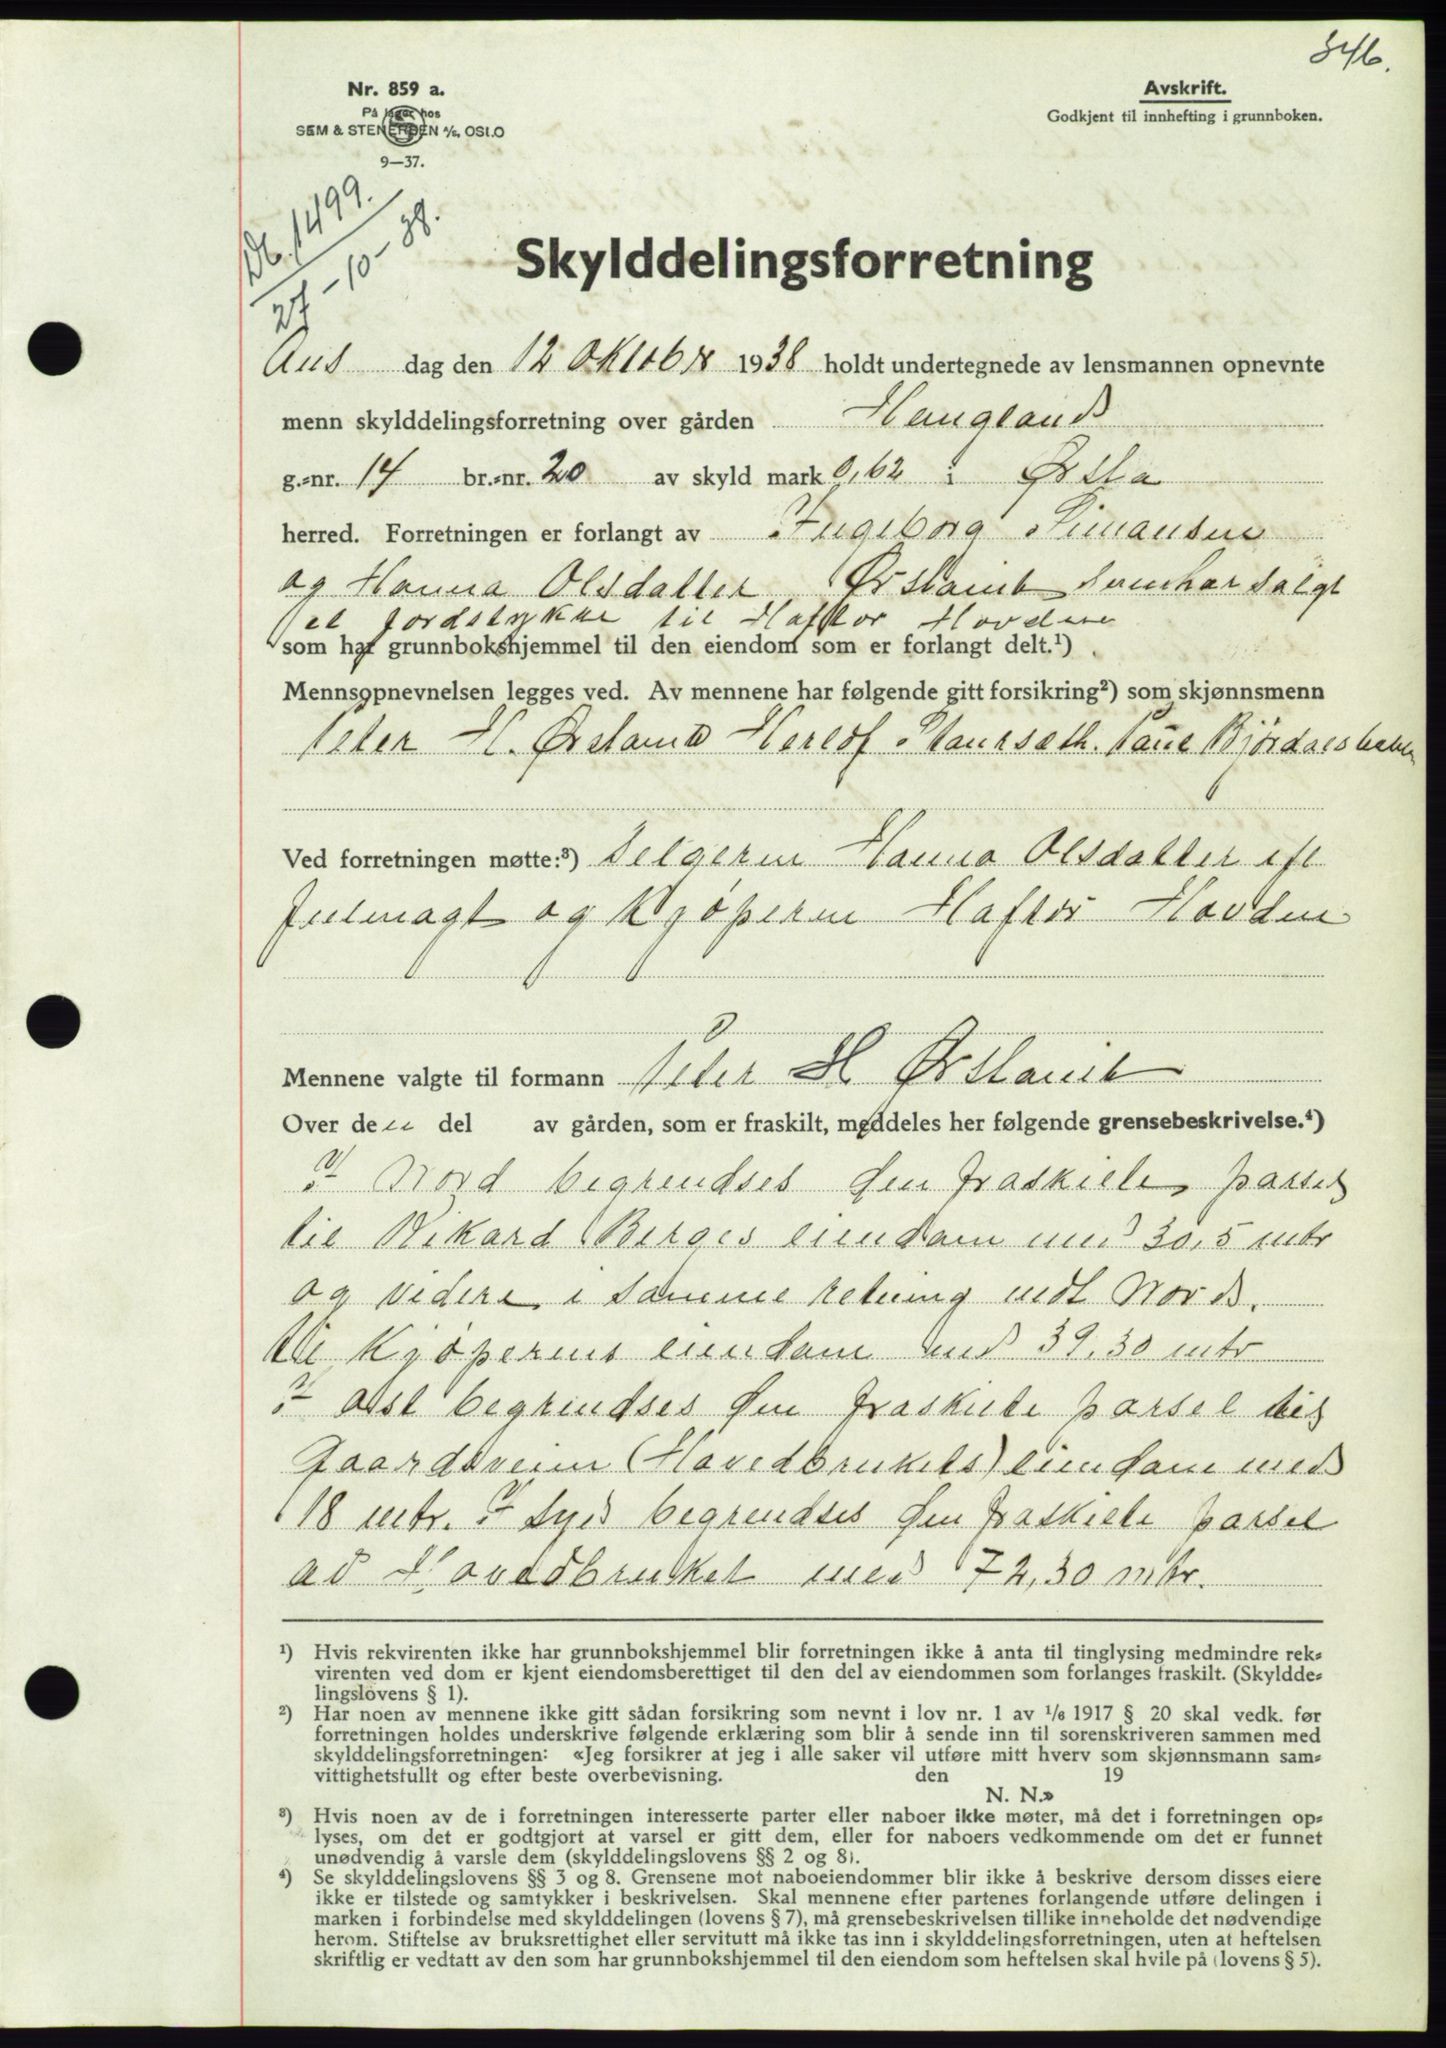 346.
Nr. 859 a.
På lager hos
SEM & STENERSEN A/S, OSLO
9—37.
Avskrift.
Godkjent til innhefting i grunnboken.
Db. 1499.
27-10-38.
Skylddelingsforretning
Ons dag den 12 Oktober 1938 holdt undertegnede av lensmannen opnevnte
menn skylddelingsforretning over gården Haugland
g.-nr. 14 br.-nr. 20 av skyld mark 0,62 i Ørsta
herred. Forretningen er forlangt av Ingeborg Simonsen
og Hanna Olsdatter Ørstavik som har solgt
et jordstykke til Haftor Hovden
som har grunnbokshjemmel til den eiendom som er forlangt delt.¹)
Mennsopnevnelsen legges ved. Av mennene har følgende gitt forsikring²) som skjønnsmenn
Peter H. Ørstavik Herlof Maurseth. Paul Bjørdalsbakke
Ved forretningen møtte:³) Selgeren Hanna Olsdatter efl
fulmagt og kjöperen Haftor Hovden
Mennene valgte til formann Peter H Ørstavik
Over den del av gården, som er fraskilt, meddeles her følgende grensebeskrivelse.⁴)
I Nord begrendses den fraskilte parsel
til Rikard Berges eiendom med 30,5 mtr
og videre i samme retning mot Nord.
til kjöperens eiendom med 39,30 mtr
I ost begrendses den fraskilte parsel til
Gaardsveien (Hovedbrukets) eiendom med
18 mtr. I Syd begrendses den fraskilte parsel
ad Hovedbruket med 72,30 mtr.
¹) Hvis rekvirenten ikke har grunnbokshjemmel blir forretningen ikke å anta til tinglysing medmindre rek-
virenten ved dom er kjent eiendomsberettiget til den del av eiendommen som forlanges fraskilt. (Skyldde-
lingslovens § 1).
²) Har noen av mennene ikke gitt sådan forsikring som nevnt i lov nr. 1 av 1/6 1917 § 20 skal vedk. før
forretningen holdes underskrive følgende erklæring som blir å sende inn til sorenskriveren sammen med
skylddelingsforretningen: «Jeg forsikrer at jeg i alle saker vil utføre mitt hverv som skjønnsmann sam-
vittighetsfullt og efter beste overbevisning. den 19
N. N.»
³) Hvis noen av de i forretningen interesserte parter eller naboer ikke møter, må det i forretningen op-
lyses, om det er godtgjort at varsel er gitt dem, eller for naboers vedkommende om det er funnet
unødvendig å varsle dem (skylddelingslovens §§ 2 og 8).
⁴) Se skylddelingslovens §§ 3 og 8. Grensene mot naboeiendommer blir ikke å beskrive dersom disses eiere
ikke er tilstede og samtykker i beskrivelsen. Skal mennene efter partenes forlangende utføre delingen i
marken i forbindelse med skylddelingen (lovens § 7), må grensebeskrivelsen tillike inneholde det nødvendige
herom. Stiftelse av bruksrettighet eller servitutt må ikke tas inn i skylddelingsforretningen, uten at heftelsen
skriftlig er vedtatt av den som har grunnbokshjemmel til den eiendom som heftelsen skal hvile på (lovens § 5).